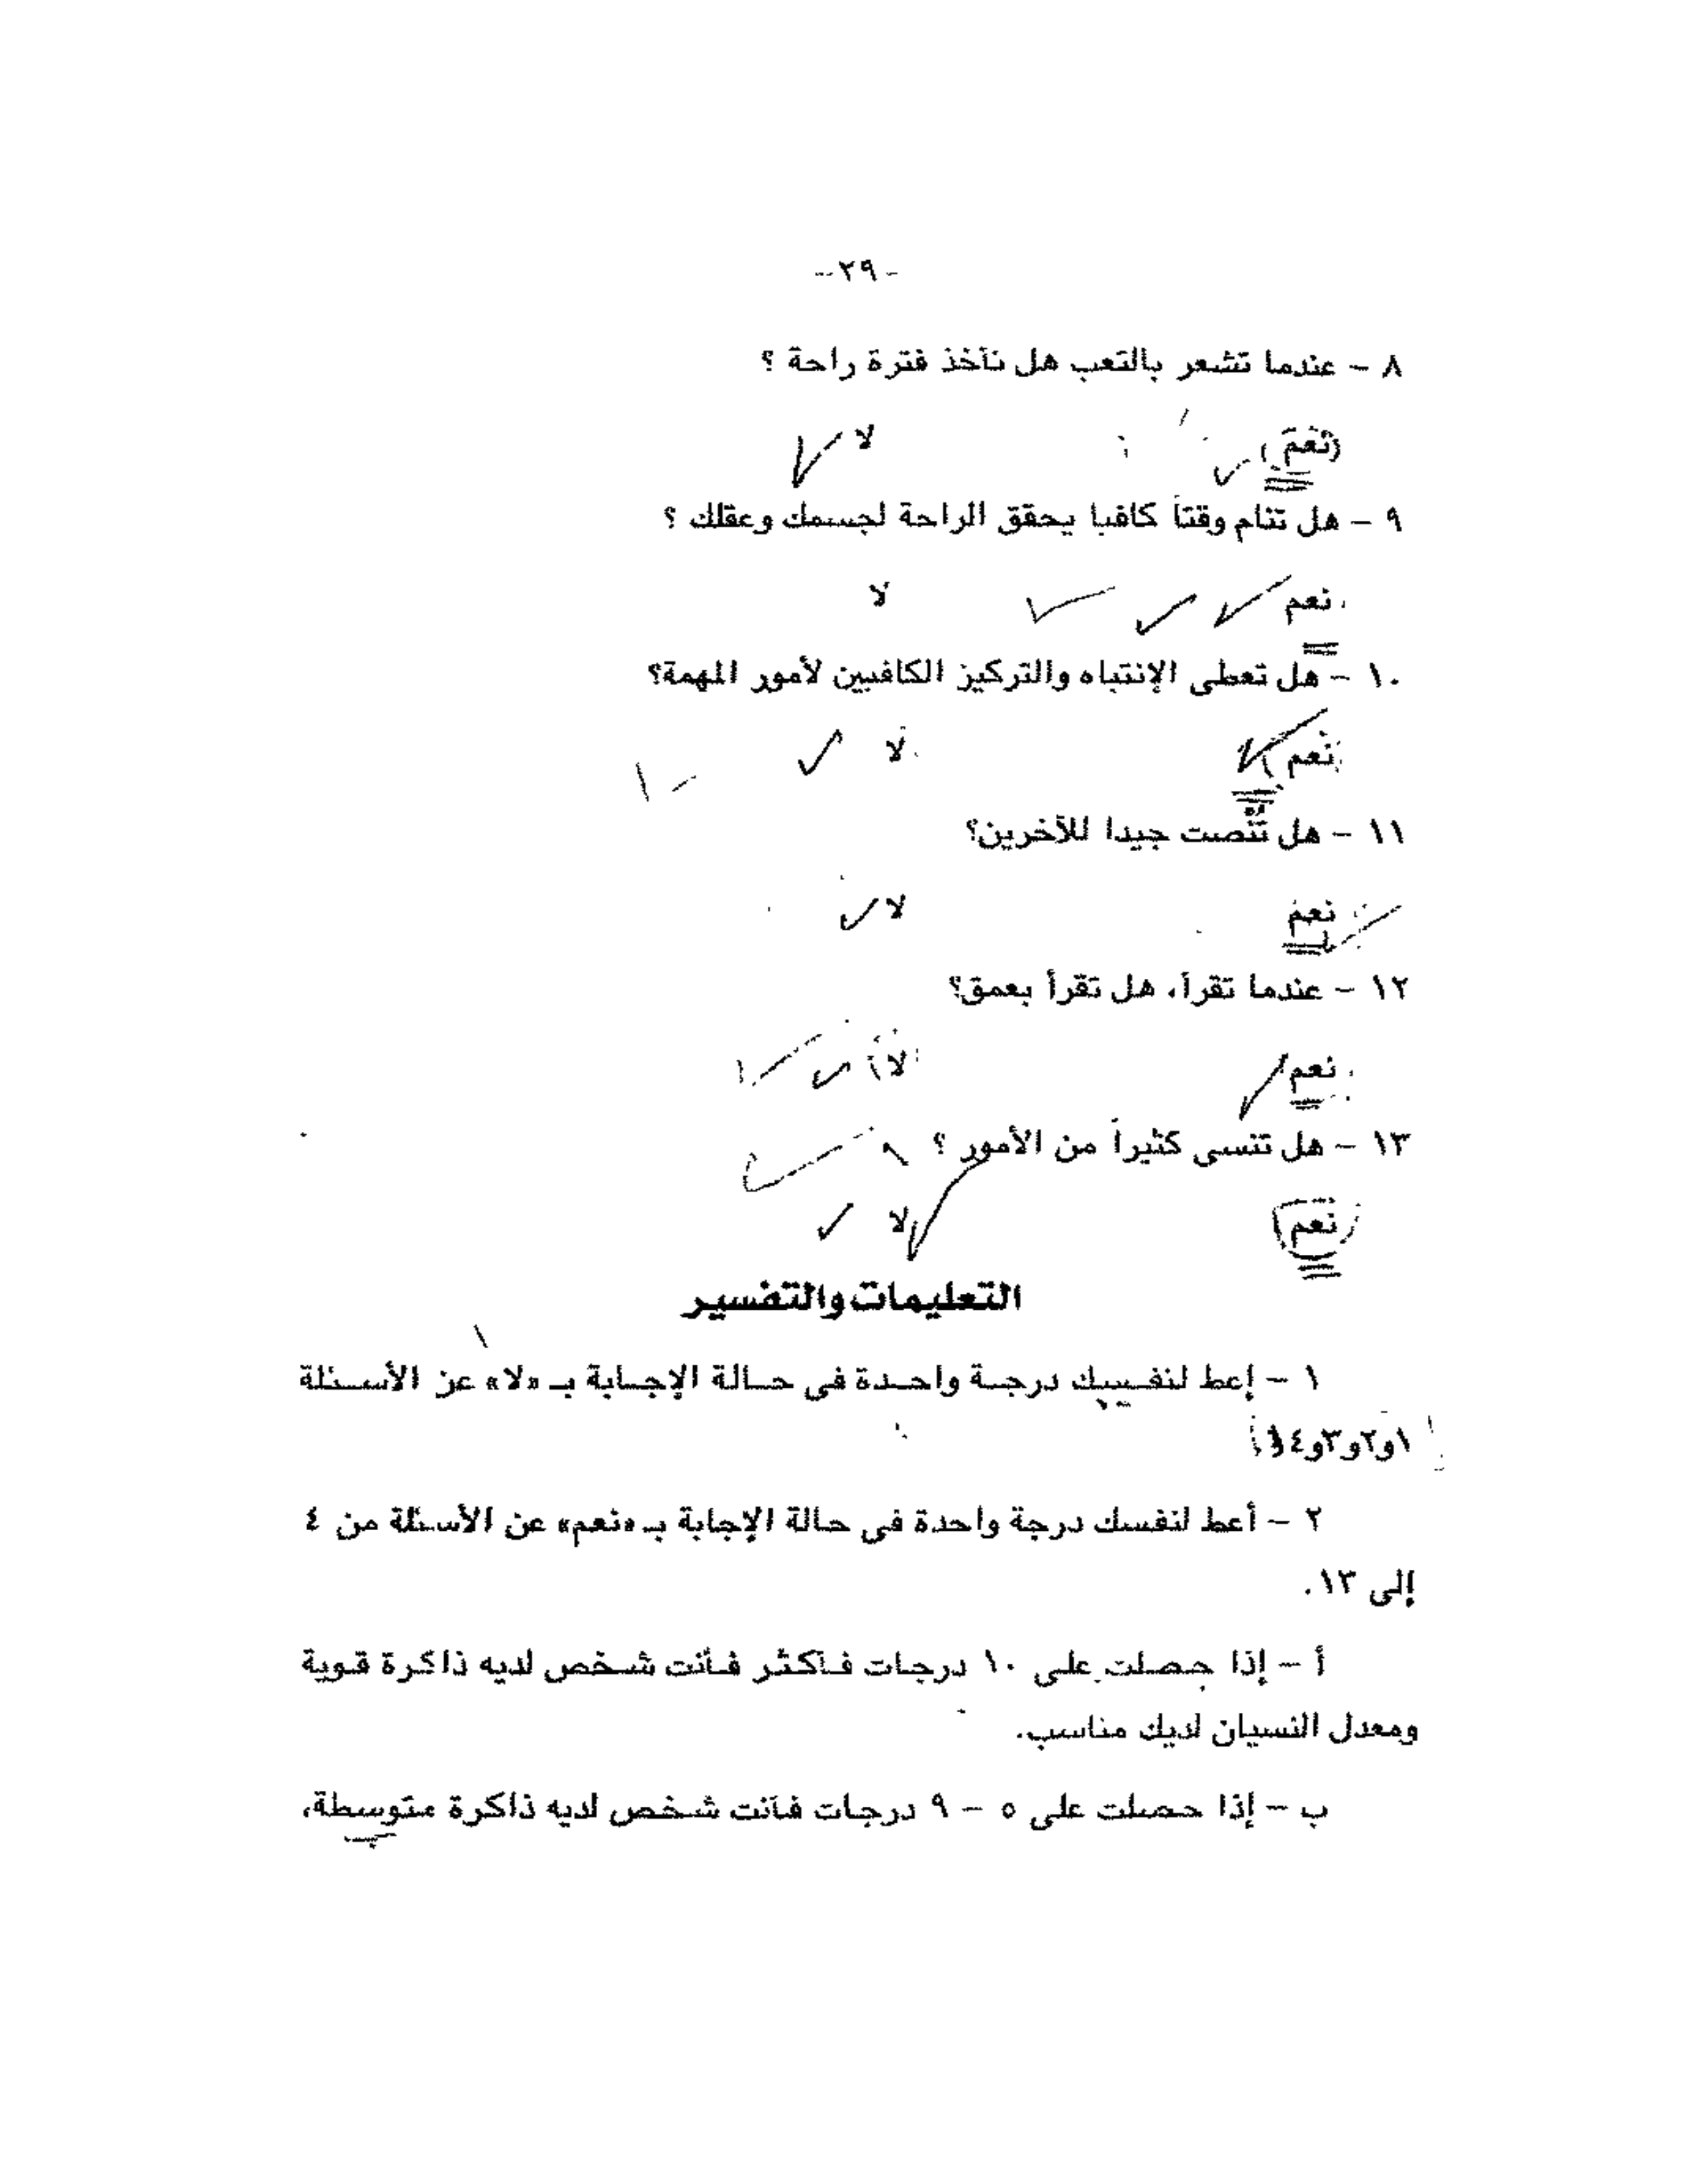 -٢٩-
٨ - عندما تشعر بالتعب هل تأخذ فترة راحة ؟
نعم لا
٩ - هل تنام وقتاً كافيا يحقق الراحة لجسمك وعقلك ؟
نعم لا
١٠ - هل تعطى الإنتباه والتركيز الكافيين لأمور المهمة؟
نعم لا
١١ - هل تنصت جيدا للآخرين؟
نعم لا
١٢ - عندما تقرأ، هل تقرأ بعمق؟
نعم لا
١٣ - هل تنسى كثيراً من الأمور ؟
نعم لا
التعليمات والتفسير
١ - إعط لنفسك درجة واحدة فى حالة الإجابة بـ «لا» عن الأسئلة
١و٢و٣و٤
٢ - أعط لنفسك درجة واحدة فى حالة الإجابة بـ «نعم» عن الأسئلة من ٤
إلى ١٣.
أ - إذا حصلت على ١٠ درجات فأكثر فأنت شخص لديه ذاكرة قوية
ومعدل النسيان لديك مناسب.
ب - إذا حصلت على ٥ - ٩ درجات فأنت شخص لديه ذاكرة متوسطة،